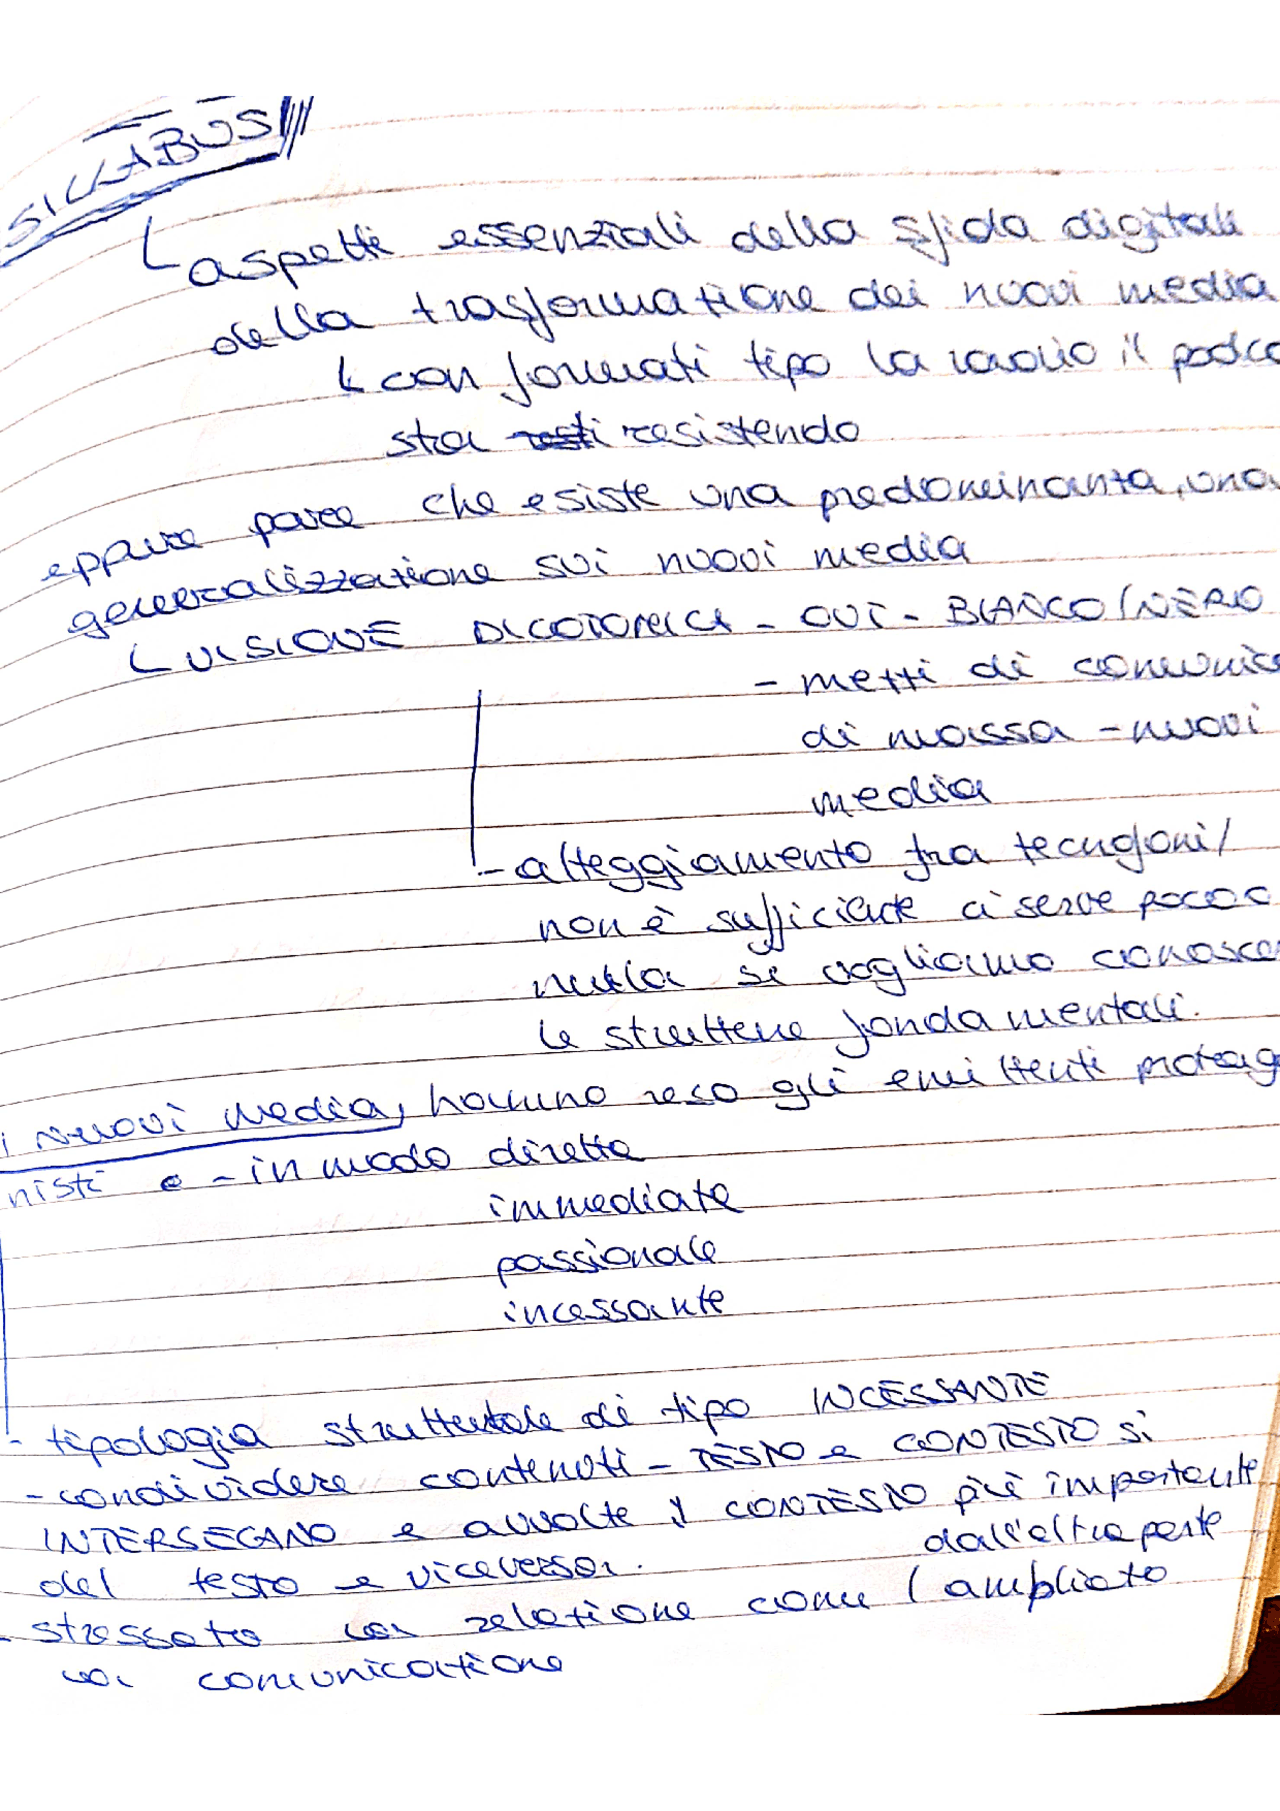 SILLABUS
aspetti essenziali della sfida digitali
della trasformazione dei nuovi media
con formati tipo la radio il podca
sta resistendo
eppure pare che esiste una predominanta, una
generalizzazione sui nuovi media
VISIONE DICOTOMICA - OUT - BIANCO/NERO
- mezzi di comunica
di massa - nuovi
media
- atteggiamento tra tecnofoni/
non è sufficiente ci serve poco o
nulla se vogliamo conosce
le strutture fondamentali.
i nuovi media, hanno reso gli emittenti protag
nisti e - in modo diretto
immediate
passionale
incessante
- tipologia strutturale di tipo INCESSANTE
- condividere contenuti - TESTO e CONTESTO si
INTERSECANO e avvolte il CONTESTO più importante
del testo e viceversa. dall'altra parte
- stressato la relazione comu (ampliato
la comunicazione